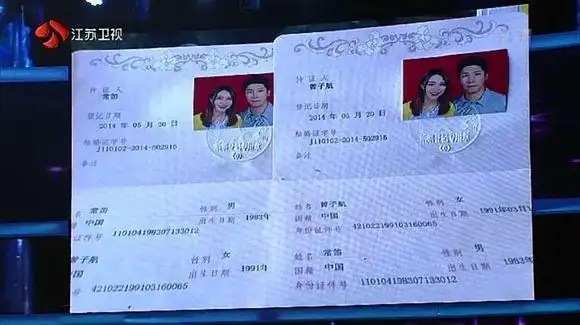 江苏卫视
持证人
常笛
登记日期
2014 年 05 月 20 日
结婚证字号
备注
持证人
曾子航
登记日期
2014 年 05 月 20 日
结婚证字号
备注
名 常笛 性别 男
籍 中国 出生日期 1983年
证件号 110104198307133012
曾子航 性别 女
中国 出生日期 1991年
421022199103160065
姓名 曾子航 性别 女
国籍 中国 出生日期 1991年03月
身份证件号 421022199103160065
姓名 常笛 性别 男
国籍 中国 出生日期 1983年
身份证件号 110104198307133012